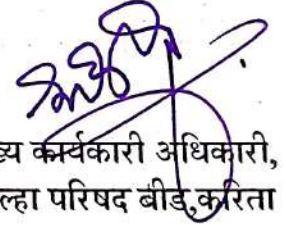 कार्यकारी अधिकारी,
परिषद बीड,करिता